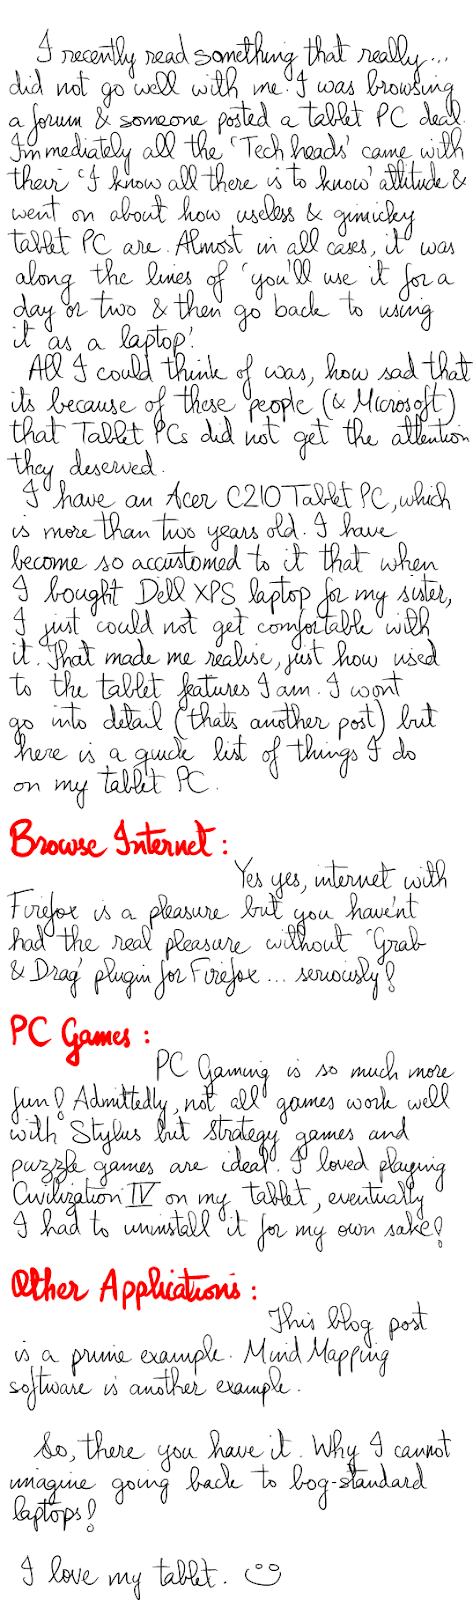 I recently read something that really...
did not go well with me. I was browsing
a forum & someone posted a tablet PC deal.
Immediately all the 'Tech heads' came with
their 'I know all there is to know' attitude &
went on about how useless & gimicky
tablet PC are. Almost in all cases, it was
along the lines of 'you'll use it for a
day or two & then go back to using
it as a laptop'.
All I could think of was, how sad that
its because of these people (& Microsoft)
that Tablet PCs did not get the attention
they deserved.
I have an Acer C210 Tablet PC, which
is more than two years old. I have
become so accustomed to it that when
I bought Dell XPS laptop for my sister,
I just could not get comfortable with
it. That made me realise, just how used
to the tablet features I am. I wont
go into detail (thats another post) but
here is a quick list of things I do
on my tablet PC.
Browse Internet :
Yes yes, internet with
Firefox is a pleasure but you haven't
had the real pleasure without 'Grab
& Drag' plugin for Firefox... seriously!
PC Games :
PC Gaming is so much more
fun! Admittedly, not all games work well
with Stylus but strategy games and
puzzle games are ideal. I loved playing
Civilization IV on my tablet, eventually
I had to uninstall it for my own sake!
Other Applications :
This blog post
is a prime example. Mind Mapping
software is another example.
So, there you have it. Why I cannot
imagine going back to bog-standard
laptops!
I love my tablet.